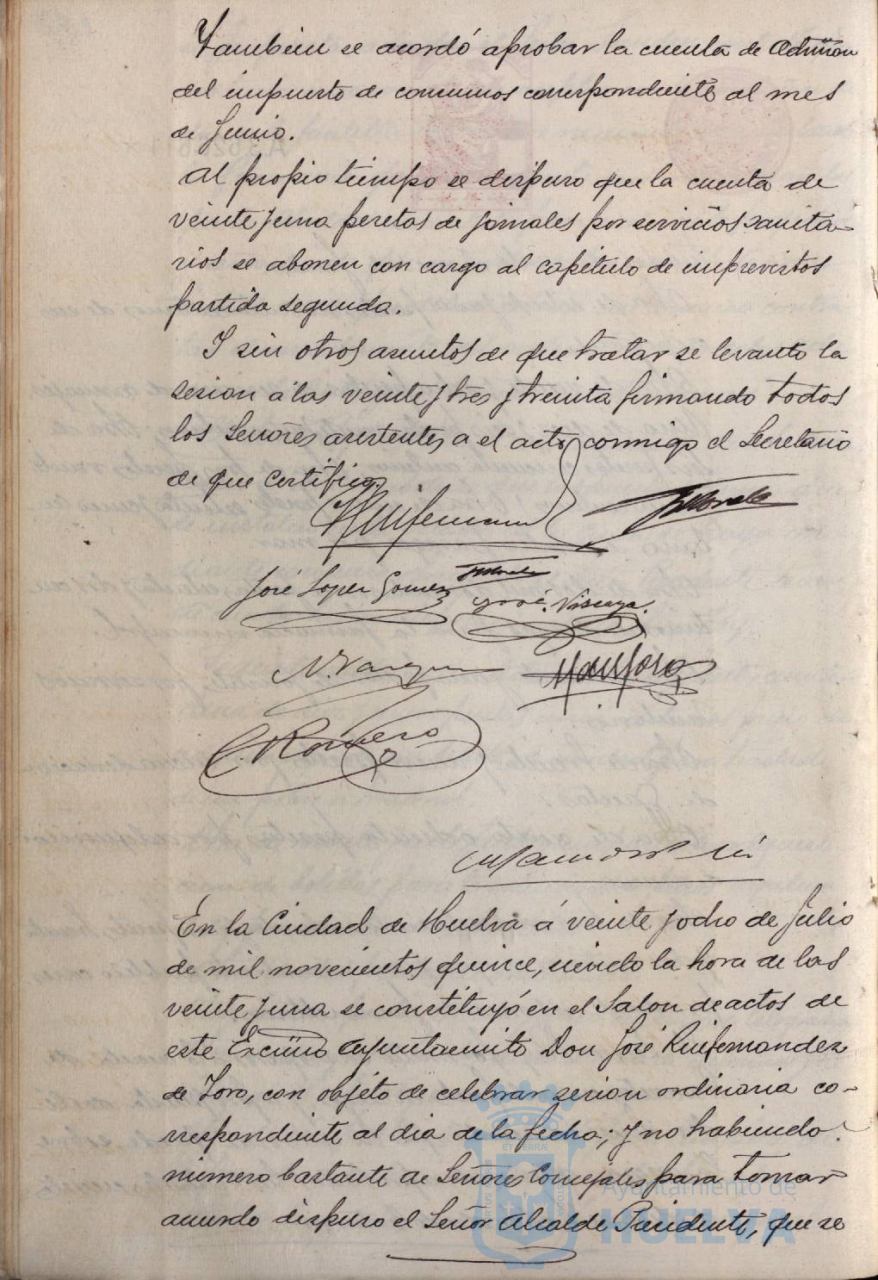 Tambien se acordó aprobar la cuenta de Admon
del impuesto de consumos correspondiente al mes
de Junio.
Al propio tiempo se dispuso que la cuenta de
veinte y una pesetas de jornales por servicios sanita-
rios se abonen con cargo al capitulo de imprevistos
partida segunda.
I sin otros asuntos de que tratar se levanto la
sesion á las veinte y tres y treinta firmando todos
los Señores asistentes a el acto conmigo el Secretario
de que certifico
José Lopez Gomez
José. Vizcaya.
N. Vazquez
C. Romero
En la Ciudad de Huelva á veinte y ocho de Julio
de mil novecientos quince, siendo la hora de las
veinte y una se constituyó en el Salon de actos de
este Excmo Ayuntamiento Don José Ruifernandez
de Toro, con objeto de celebrar sesion ordinaria co-
rrespondiente al dia de la fecha; y no habiendo
número bastante de Señores Concejales para tomar
acuerdo dispuso el Señor Alcalde Presidente, que se
Ayuntamiento de
HUELVA